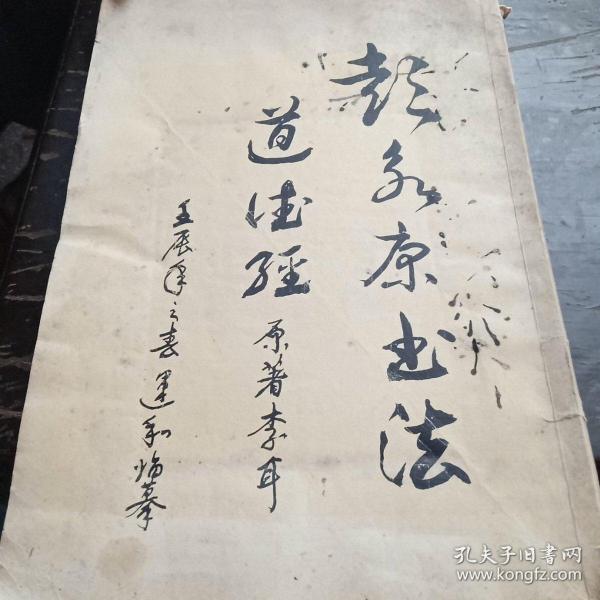 彭永康书法
道德经 原著李耳
壬辰年之春运和临摹
孔夫子旧书网
www.kongfz.com